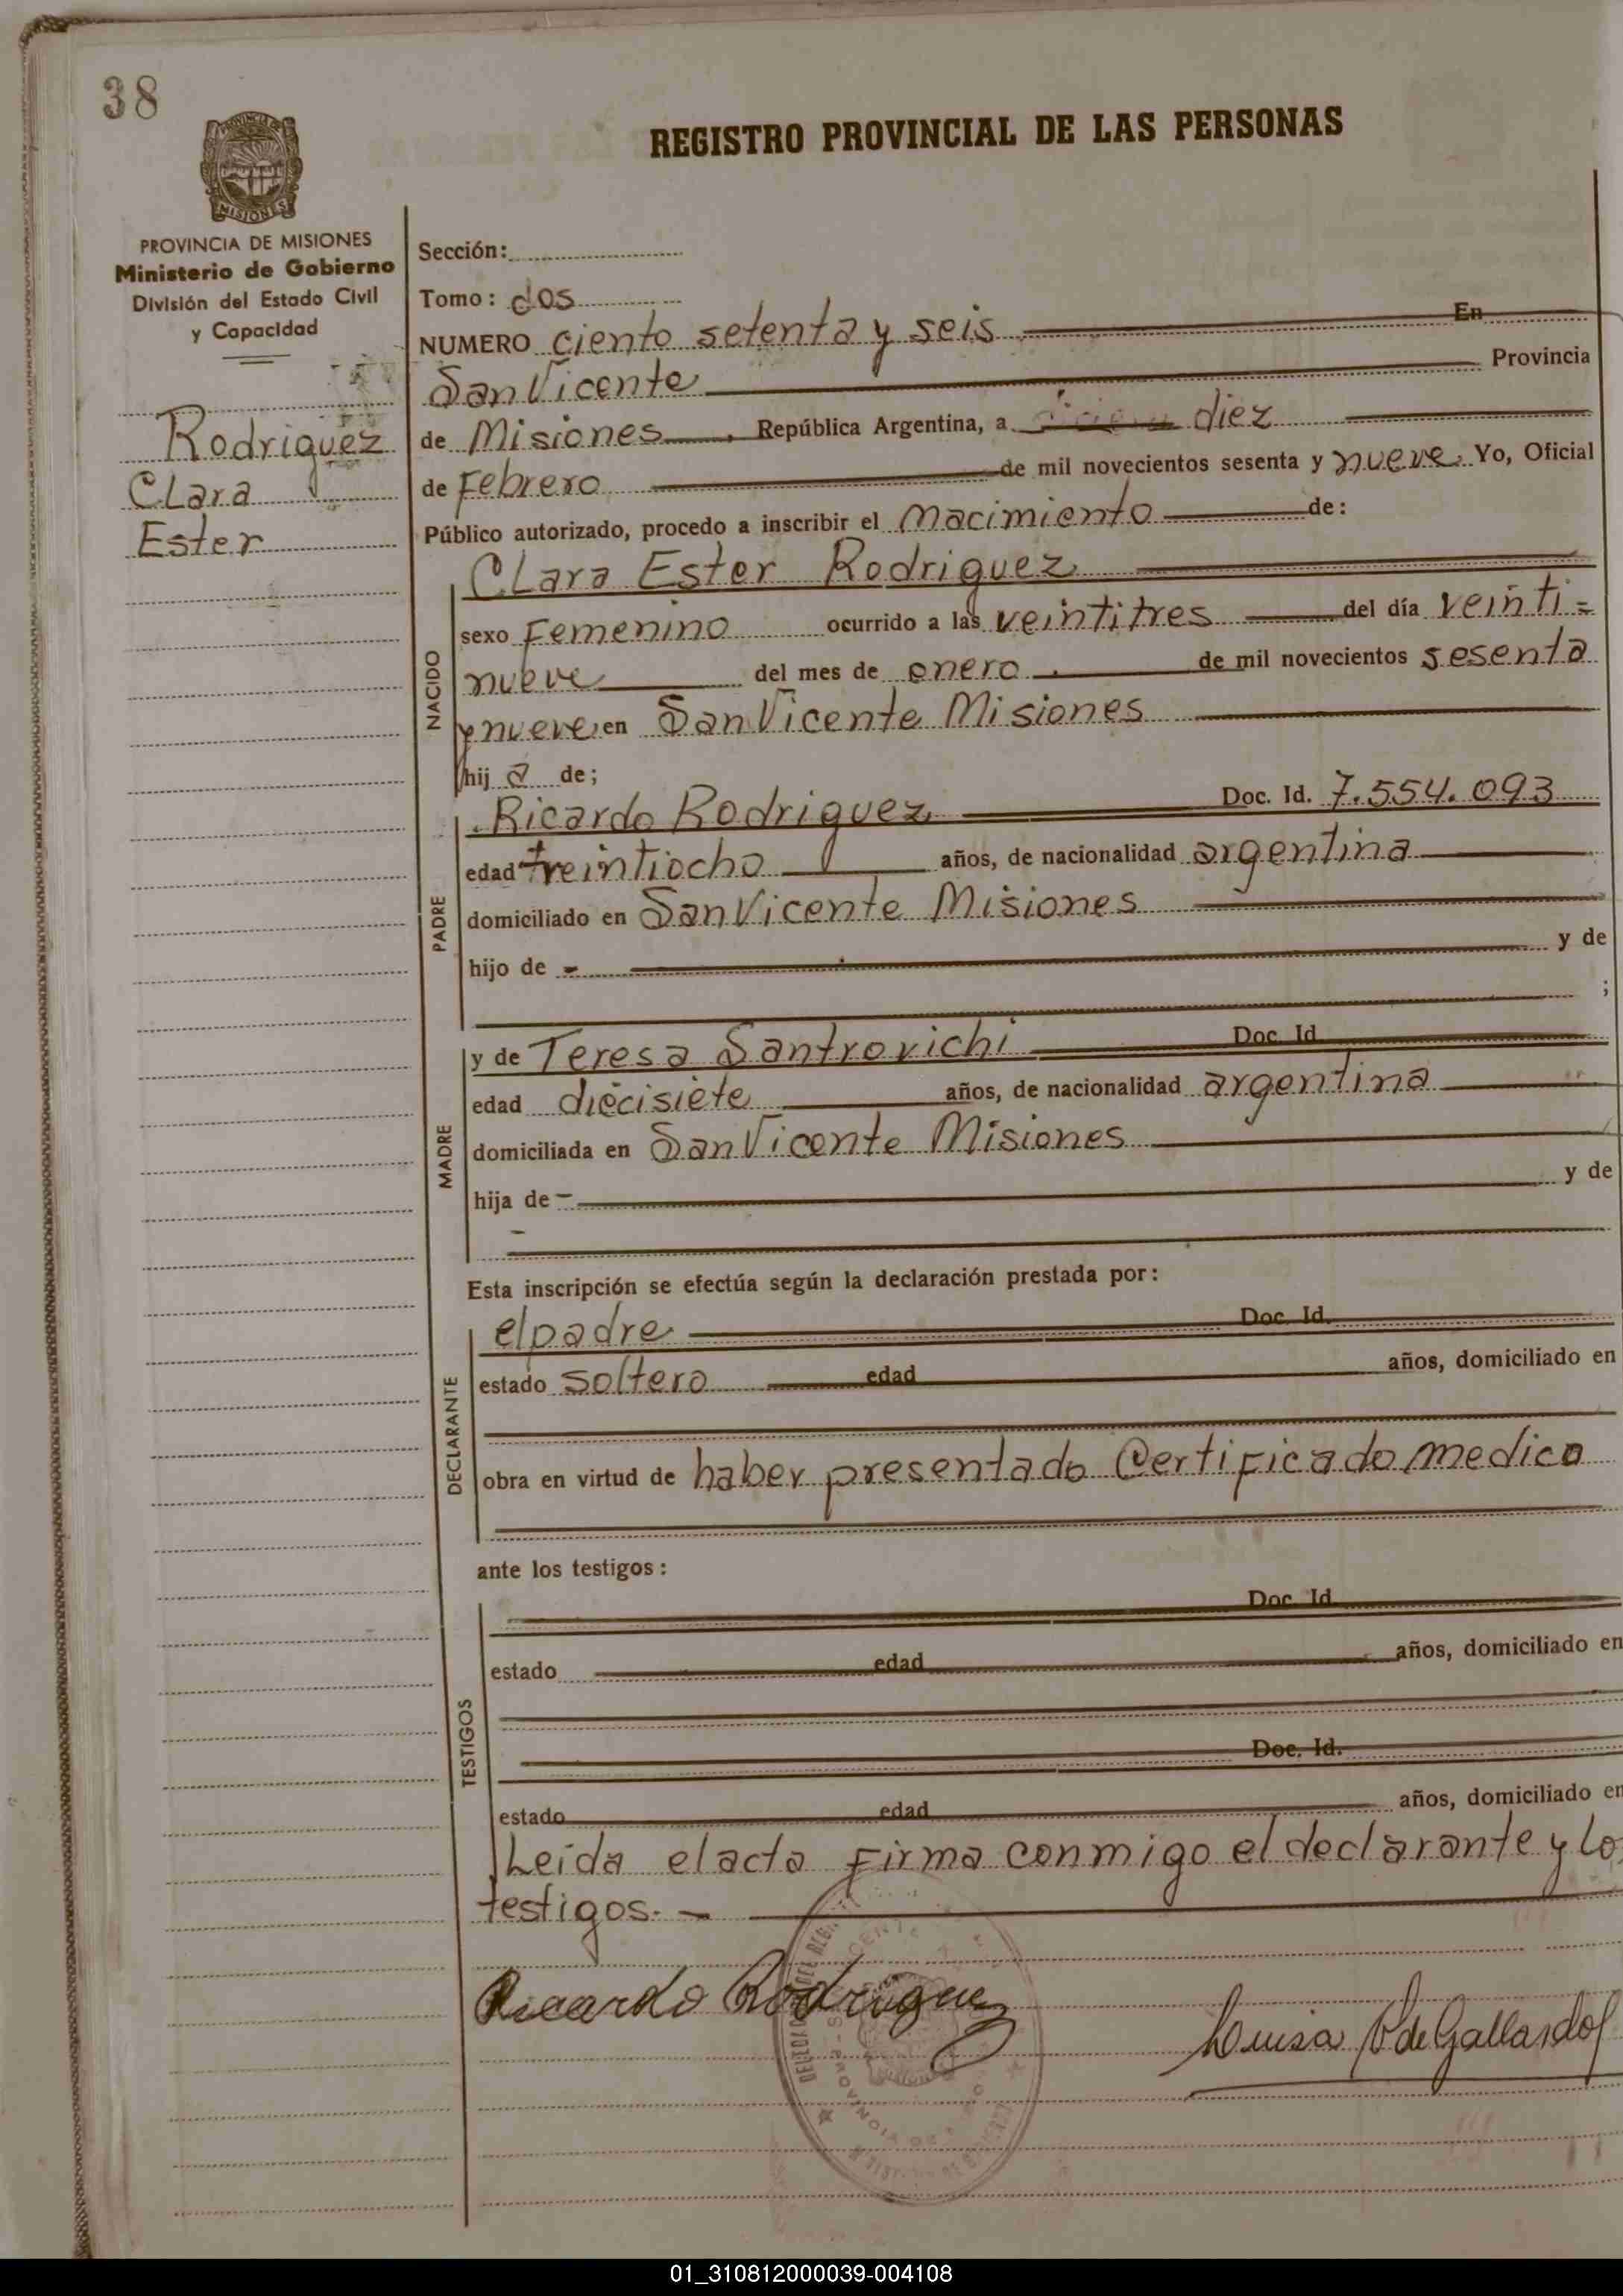 38
REGISTRO PROVINCIAL DE LAS PERSONAS
PROVINCIA DE MISIONES
Ministerio de Gobierno
División del Estado Civil
y Capacidad
Rodriguez
Clara
Ester
Sección:
Tomo: dos
NUMERO ciento setenta y seis En
San Vicente Provincia
de Misiones, República Argentina, a diez
de Febrero de mil novecientos sesenta y nueve. Yo, Oficial
Público autorizado, procedo a inscribir el Nacimiento de:
NACIDO
Clara Ester Rodriguez
sexo Femenino ocurrido a las veintitres del día veinti=
nueve del mes de enero de mil novecientos sesenta
y nueve en San Vicente Misiones
hij a de;
PADRE
Ricardo Rodriguez Doc. Id. 7.554.093
edad treintiocho años, de nacionalidad argentina
domiciliado en San Vicente Misiones
hijo de - y de
;
MADRE
y de Teresa Santrovichi Doc. Id
edad diecisiete años, de nacionalidad argentina
domiciliada en San Vicente Misiones
hija de - y de
-
Esta inscripción se efectúa según la declaración prestada por:
DECLARANTE
el padre Doc. Id.
estado soltero edad años, domiciliado en
obra en virtud de haber presentado Certificado medico
ante los testigos:
TESTIGOS
Doc. Id
estado edad años, domiciliado en
Doc. Id.
estado edad años, domiciliado en
Leida el acta firma conmigo el declarante y lo
testigos. -
Ricardo Rodriguez
Luisa de Gallardo
01_310812000039-004108